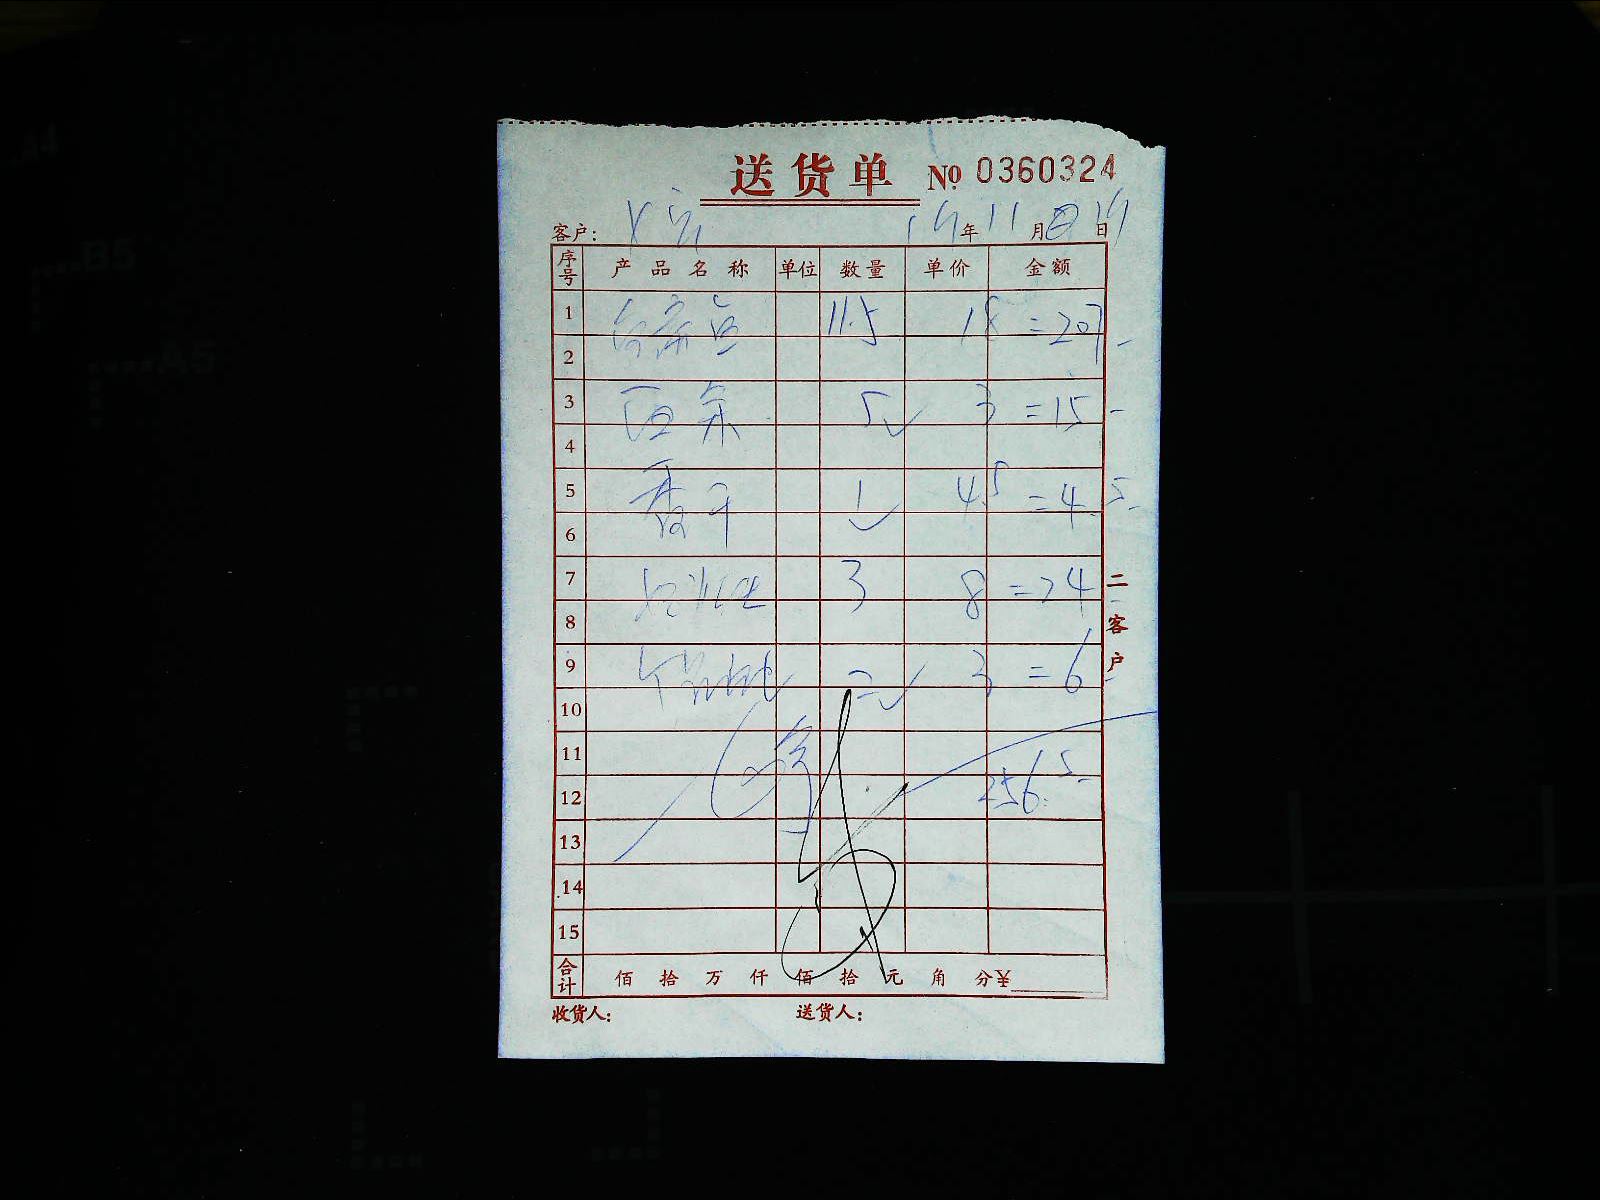 送货单 № 0360324
客户： 19年11月 日19
序号 产品名称 单位 数量 单价 金额
1 11.5 18 =207-
2
3 5 3 =15-
4
5 香干 1 4.5 =4.5-
6
7 3 8 =24-
8
9 二 3 =6-
10
11
12 256.5-
13
14
15
合计 佰拾万仟佰拾元角分¥
收货人： 送货人：
二客户
A4
B5
A5